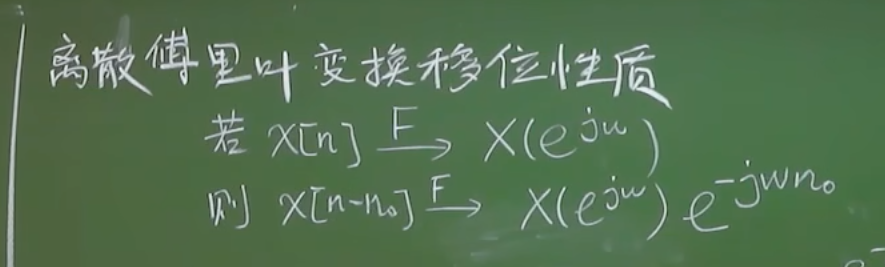 离散傅里叶变换移位性质
若 X[n] F→ X(e^{jω})
则 X[n-n₀] F→ X(e^{jω}) e^{-jωn₀}